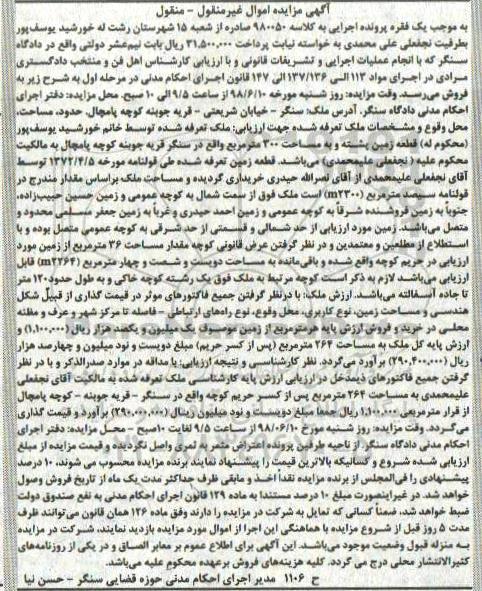 آگهی مزایده اموال غیرمنقول - منقول
به موجب یک فقره پرونده اجرایی به کلاسه ۹۸۰۰۵۰ صادره از شعبه ۱۵ شهرستان رشت له خورشید یوسف‌پور
بطرفیت نجفعلی علی محمدی به خواسته نیابت پرداخت ۳۱٬۵۰۰٬۰۰۰ ریال بابت نیم‌عشر دولتی واقع در دادگاه
سنگر که با انجام عملیات اجرایی و تشریفات قانونی و با ارزیابی کارشناس اهل فن و منتخب دادگستری
مرادی در اجرای مواد ۱۱۳ الی ۱۳۷/۱۳۶ الی ۱۴۷ قانون اجرای احکام مدنی در مرحله اول به شرح زیر به
فروش می‌رسد. وقت مزایده: روز شنبه مورخه ۹۸/۶/۱۰ از ساعت ۹/۵ الی ۱۰ صبح. محل مزایده: دفتر اجرای
احکام مدنی دادگاه سنگر. آدرس ملک: سنگر - خیابان شریعتی - قریه جوبنه کوچه پامچال، حدود، مساحت،
محل وقوع و مشخصات ملک تعرفه شده جهت ارزیابی: ملک تعرفه شده توسط خانم خورشید یوسف‌پور
(محکوم له) قطعه زمین پشته و به مساحت ۳۰۰ مترمربع واقع در سنگر قریه جوبنه کوچه پامچال به مالکیت
محکوم علیه (نجفعلی علیمحمدی) می‌باشند. قطعه زمین تعرفه شده طی قولنامه مورخه ۱۳۷۲/۴/۵ توسط
آقای نجفعلی علیمحمدی از آقای نصرالله حیدری خریداری گردیده و مساحت ملک براساس مقدار مندرج در
قولنامه سیصد مترمربع (m۲۳۰۰) است ملک فوق از سمت شمال به کوچه عمومی و زمین حسین حبیب‌زاده،
جنوباً به زمین فروشنده شرقاً به کوچه عمومی و زمین احمد حیدری و غرباً به زمین جعفر مسلمی محدود و
متصل می‌باشند. زمین مورد ارزیابی از حد شمالی و قسمتی از حد شرقی به کوچه عمومی متصل بوده و با
استطلاع از مطلعین و معتمدین و در نظر گرفتن عرف قانونی کوچه مقدار مساحت ۳۶ مترمربع از زمین مورد
ارزیابی در حریم کوچه واقع شده و باقی‌مانده به مساحت دویست و شصت و چهار مترمربع (m۲۲۶۴) قابل
ارزیابی می‌باشد لازم به ذکر است کوچه مرتبط به ملک فوق یک رشته کوچه خاکی و به طول حدود ۱۲۰ متر
تا جاده آسفالته می‌باشد. ارزش ملک: با درنظر گرفتن جمیع فاکتورهای موثر در قیمت گذاری از قبیل شکل
هندسی و مساحت زمین، نوع کاربری، محل وقوع، نوع راه‌های ارتباطی - فاصله تا مرکز شهر و عرف و مظنه
محلی در خرید و فروش ارزش پایه هرمترمربع از زمین موصوف یک میلیون و یکصد هزار ریال (۱٬۱۰۰٬۰۰۰) و
ارزش پایه کل ملک به مساحت ۲۶۴ مترمربع (پس از کسر حریم) مبلغ دویست و نود میلیون و چهارصد هزار
ریال (۲۹۰٬۴۰۰٬۰۰۰) برآورد می‌گردد. نظر کارشناسی و نتیجه ارزیابی: با مداقه در موارد صدرالذکر و با در نظر
گرفتن جمیع فاکتورهای ذیمدخل در ارزیابی ارزش پایه کارشناسی ملک تعرفه شده به مالکیت آقای نجفعلی
علیمحمدی به مساحت ۲۶۴ مترمربع پس از کسر حریم کوچه واقع در سنگر - قریه جوبنه - کوچه پامچال
از قرار مترمربعی ۱٬۱۰۰٬۰۰۰ ریال جمعاً مبلغ دویست و نود میلیون ریال (۲۹۰٬۰۰۰٬۰۰۰) برآورد و قیمت گذاری
می‌گردد. وقت مزایده: روز شنبه مورخ ۹۸/۰۶/۱۰ از ساعت ۹/۵ لغایت ۱۰ صبح - محل مزایده: دفتر اجرای
احکام مدنی دادگاه سنگر. از ناحیه طرفین پرونده اعتراض مثمربه ثمری واصل نگردیده و قیمت مزایده از مبلغ
ارزیابی شده شروع و کسانیکه بالاترین قیمت را پیشنهاد نمایند برنده مزایده محسوب می شوند، ۱۰ درصد
پیشنهادی را فی‌المجلس از برنده مزایده نقداً اخذ و مابقی ظرف حداکثر مدت یک ماه از تاریخ فروش وصول
خواهد شد. در غیراینصورت مبلغ ۱۰ درصد مستندا به ماده ۱۲۹ قانون اجرای احکام مدنی به نفع صندوق دولت
ضبط خواهد شد، ضمناً کسانی که تمایل به شرکت در مزایده را دارند وفق ماده ۱۲۶ همان قانون می‌توانند ظرف
مدت ۵ روز قبل از شروع مزایده با هماهنگی این اجرا از اموال مورد مزایده بازدید نمایند، شرکت در مزایده
به منزله قبول وضعیت موجود می‌باشد. این آگهی برای اطلاع عموم بر معابر الصاق و در یکی از روزنامه‌های
کثیرالانتشار محلی درج می گردد. کلیه هزینه‌های فروش برعهده محکوم علیه می‌باشد.
ح ۱۱۰۶ مدیر اجرای احکام مدنی حوزه قضایی سنگر - حسن نیا